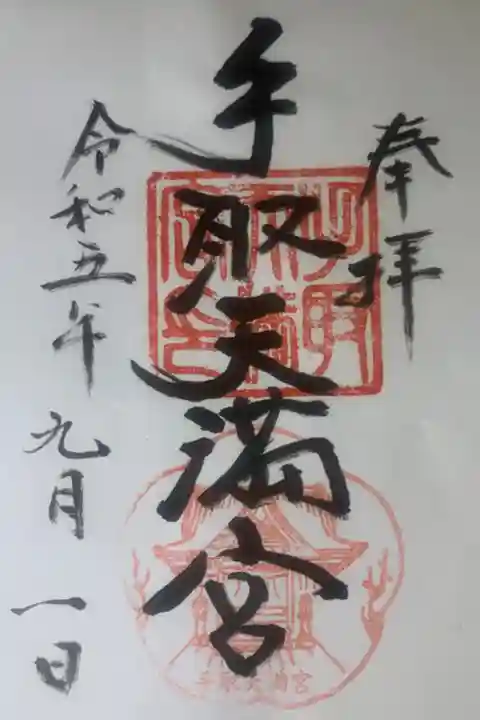 奉拝
手取天満宮
令和五年九月一日
手取天満宮
手取天満宮